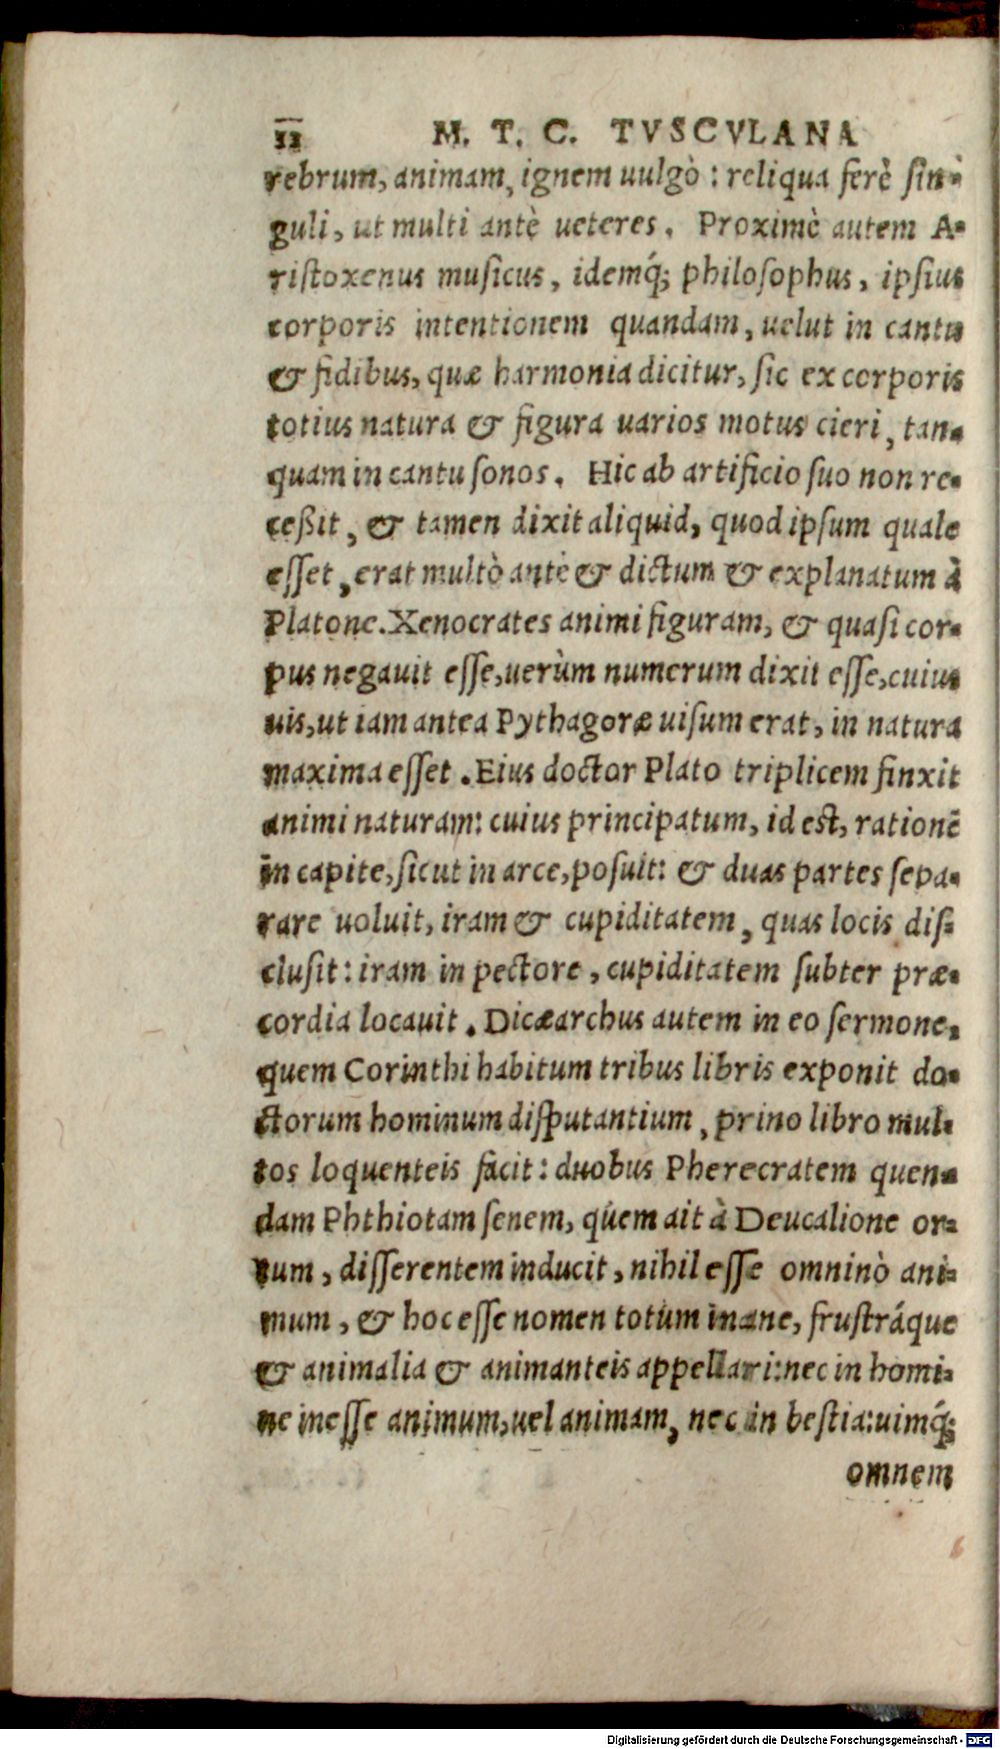 12 M. T. C. TVSCVLANA
rebrum, animam, ignem uulgò: reliqua ferè ſin-
guli, ut multi antè ueteres. Proximè autem A-
riſtoxenus muſicus, idemq́; philoſophus, ipſius
corporis intentionem quandam, uelut in cantu
& fidibus, quæ harmonia dicitur, ſic ex corporis
totius natura & figura uarios motus cieri, tan-
quam in cantu ſonos. Hic ab artificio ſuo non re-
ceßit, & tamen dixit aliquid, quod ipſum quale
eſſet, erat multò antè & dictum & explanatum à
Platone. Xenocrates animi figuram, & quaſi cor-
pus negauit eſſe, uerùm numerum dixit eſſe, cuius
uis, ut iam antea Pythagoræ uiſum erat, in natura
maxima eſſet. Eius doctor Plato triplicem finxit
animi naturam: cuius principatum, id est, rationē
in capite, ſicut in arce, poſuit: & duas partes ſepa-
rare uoluit, iram & cupiditatem, quas locis diſ-
cluſit: iram in pectore, cupiditatem ſubter præ-
cordia locauit. Dicæarchus autem in eo ſermone,
quem Corinthi habitum tribus libris exponit do-
ctorum hominum diſputantium, prino libro mul-
tos loquenteis facit: duobus Pherecratem quen-
dam Phthiotam ſenem, quem ait à Deucalione or-
tum, diſſerentem inducit, nihil eſſe omninò ani-
mum, & hoc eſſe nomen totum inane, fruſtráque
& animalia & animanteis appellari: nec in homi-
ne ineſſe animum, uel animam, nec in beſtia: uimq́;
omnem
Digitalisierung gefördert durch die Deutsche Forschungsgemeinschaft - DFG